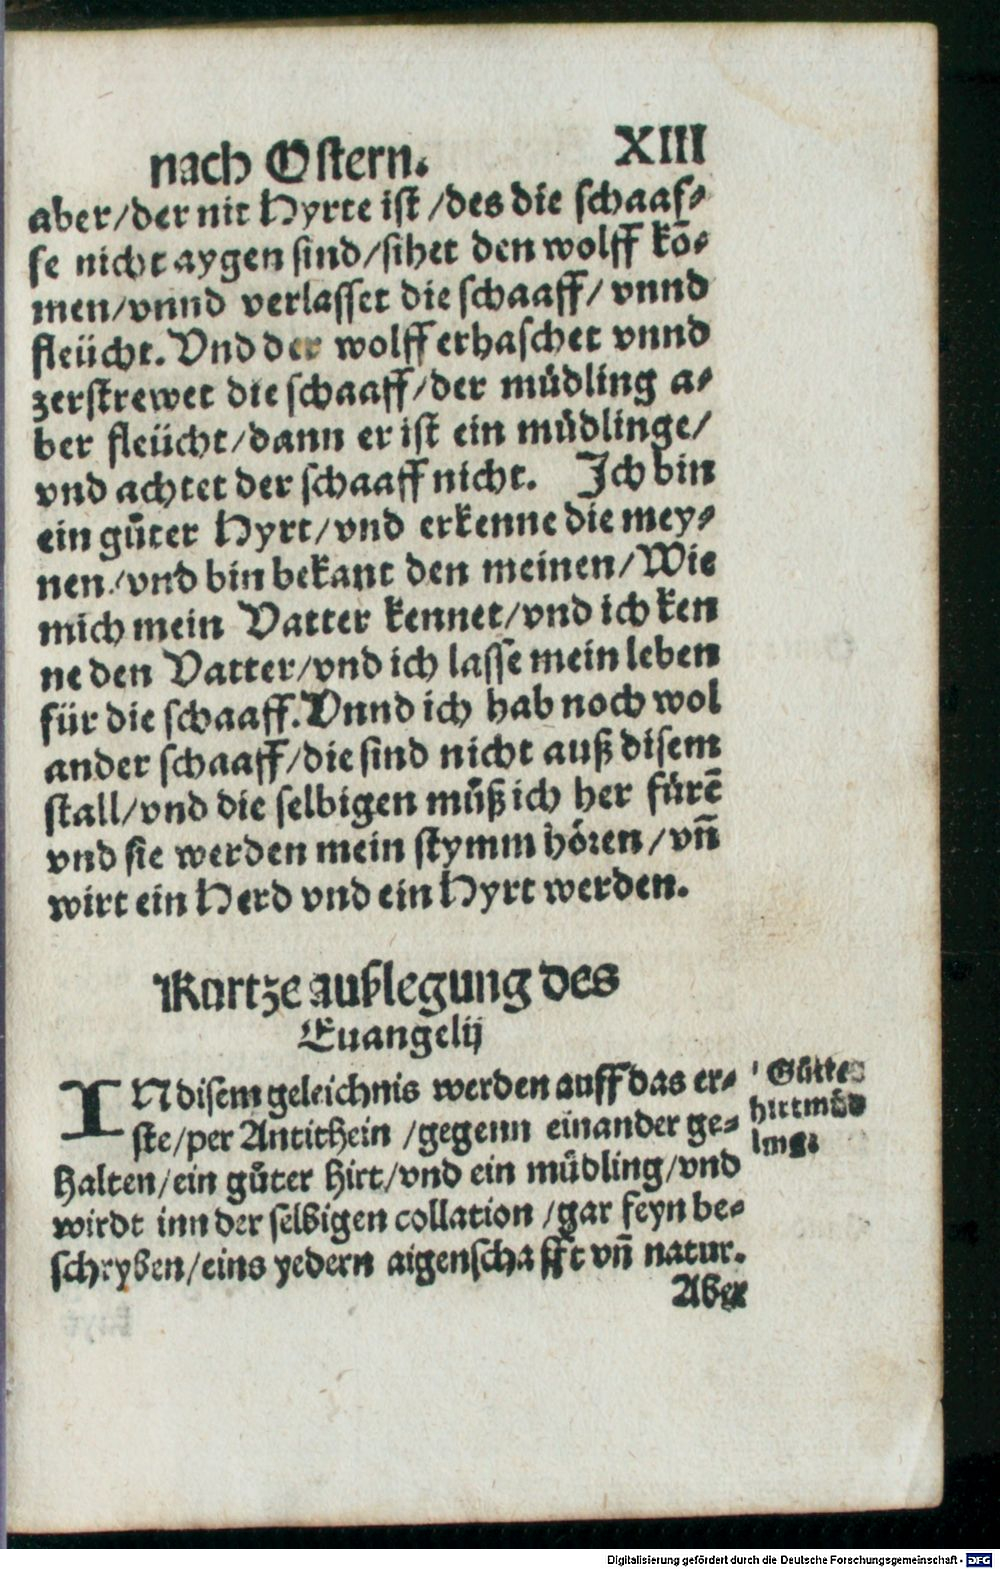 nach Ostern. XIII
aber/der nit Hyrte ist/des die schaaf⸗
fe nicht aygen sind/sihet den wolff kõ⸗
men/vnnd verlasset die schaaff/vnnd
fleücht. Vnd der wolff erhaschet vnnd
zerstrewet die schaaff/der müdling a⸗
ber fleücht/dann er ist ein müdlinge/
vnd achtet der schaaff nicht. Ich bin
ein gůter Hyrt/vnd erkenne die mey⸗
nen/vnd bin bekant den meinen/Wie
mich mein Vatter kennet/vnd ich ken
ne den Vatter/vnd ich lasse mein leben
für die schaaff. Vnnd ich hab noch wol
ander schaaff/die sind nicht auß disem
stall/vnd die selbigen můß ich her fürẽ
vnd sie werden mein stymm hören/vñ
wirt ein Herd vnd ein Hyrt werden.
Kurtze außlegung des
Euangelij
IN disem geleichnis werden auff das er⸗
ste/per Antithein/gegenn einander ge⸗
halten/ein gůter hirt/vnd ein müdling/vnd
wirdt inn der selbigen collation/gar feyn be⸗
schryben/eins yedern aigenschafft vñ natur.
Aber
Gůtte
hirt müd
ling.
Digitalisierung gefördert durch die Deutsche Forschungsgemeinschaft - DFG